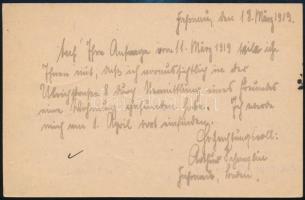 den 18. März 1919.
Auf Ihre Anfrage vom 11. März 1919 teile ich
Ihnen mit, daß ich voraussichtlich in der
8 durch Vermittlung eines Freundes
eine Wohnung gefunden habe. Ich werde
mich am 1. April dort einfinden.
Hochachtungsvoll:
Arthur